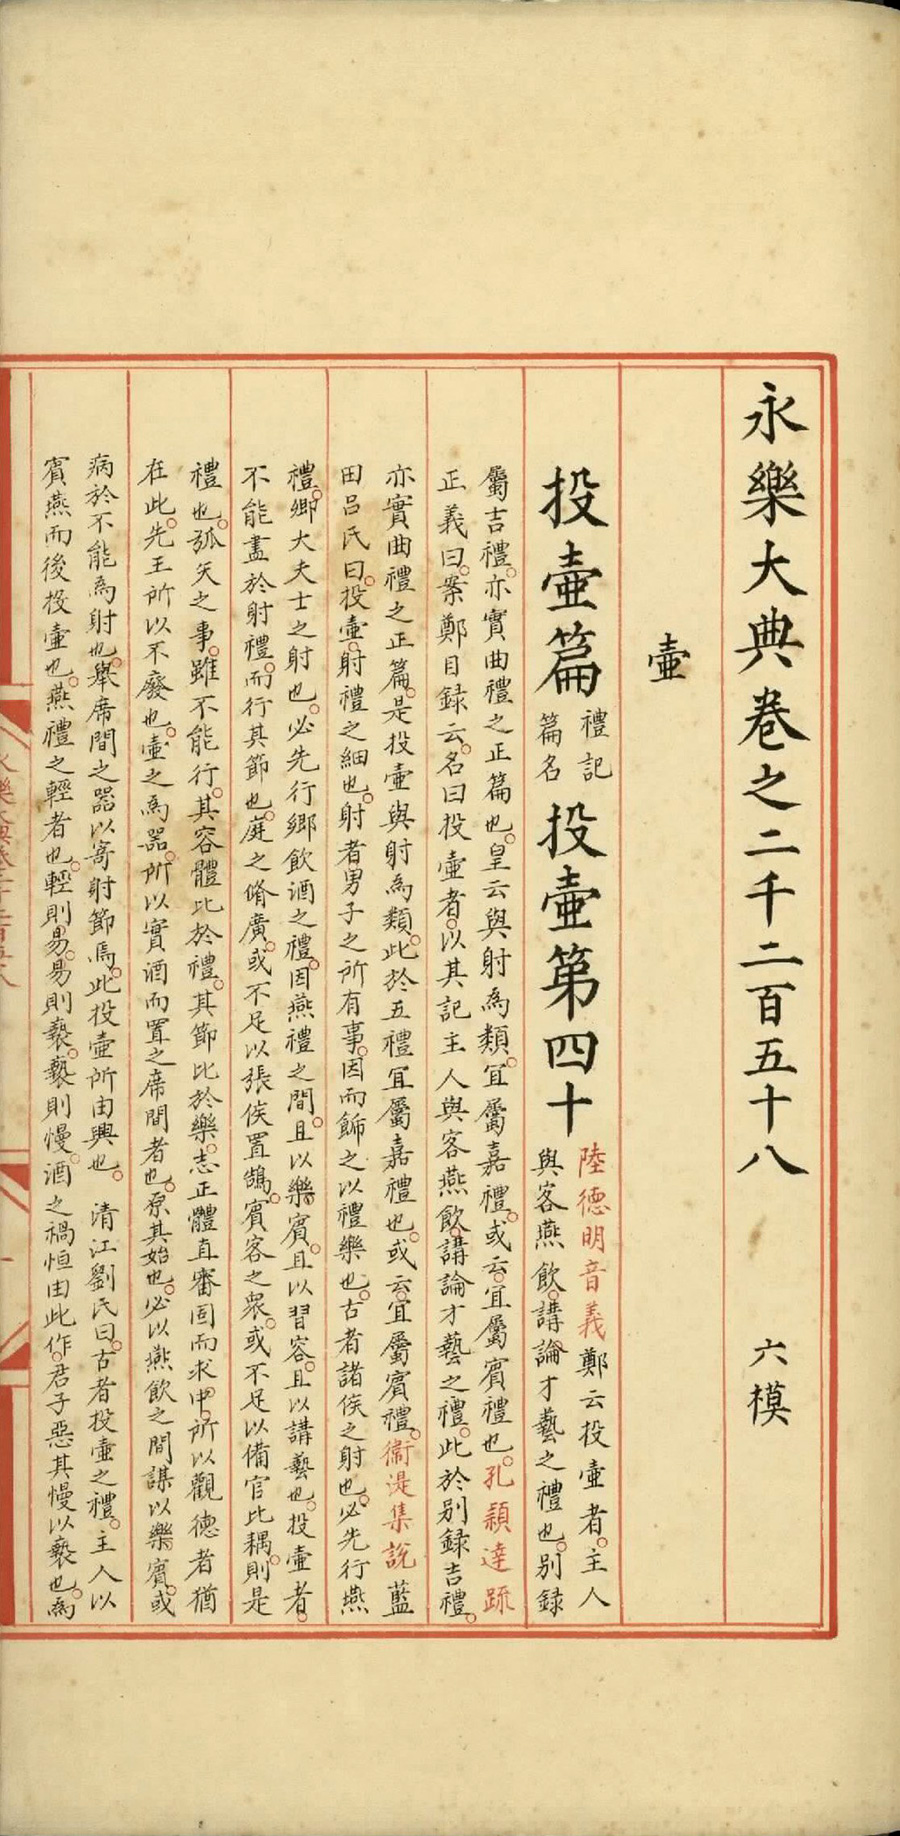 永樂大典卷之二千二百五十八 六模
壷
投壷篇 禮記篇名 投壷第四十 陸德明音義 鄭云投壷者主人
與客燕飲講論才藝之禮也别録
屬吉禮亦實曲禮之正篇也皇云與射爲類宜屬嘉禮或云宜屬賓禮也孔穎達䟽
正義曰案鄭目録云名曰投壷者以其記主人與客燕飲講論才藝之禮此於别録吉禮
亦實曲禮之正篇是投壷與射爲類此於五禮宜屬嘉禮也或云宜屬賓禮衞湜集說 藍
田吕氏曰投壷射禮之細也射者男子之所有事因而飾之以禮樂也古者諸侯之射也必先行燕
禮鄉大夫士之射也必先行鄉飲酒之禮因燕禮之間且以樂賓且以習容且以講藝也投壷者
不能盡於射禮而行其節也庭之脩廣或不足以張侯置鵠賓客之衆或不足以備官比耦則是
禮也弧矢之事雖不能行其容體比於禮其節比於樂志正體直審固而求中所以觀德者猶
在此先王所以不廢也壷之爲器所以實酒而置之席間者也原其始也必以燕飲之間謀以樂賓或
病於不能爲射也舉席間之器以寄射節焉此投壷所由興也 清江劉氏曰古者投壷之禮主人以
賓燕而後投壷也燕禮之輕者也輕則易易則褻褻則慢酒之禍恒由此作君子惡其慢以褻也爲